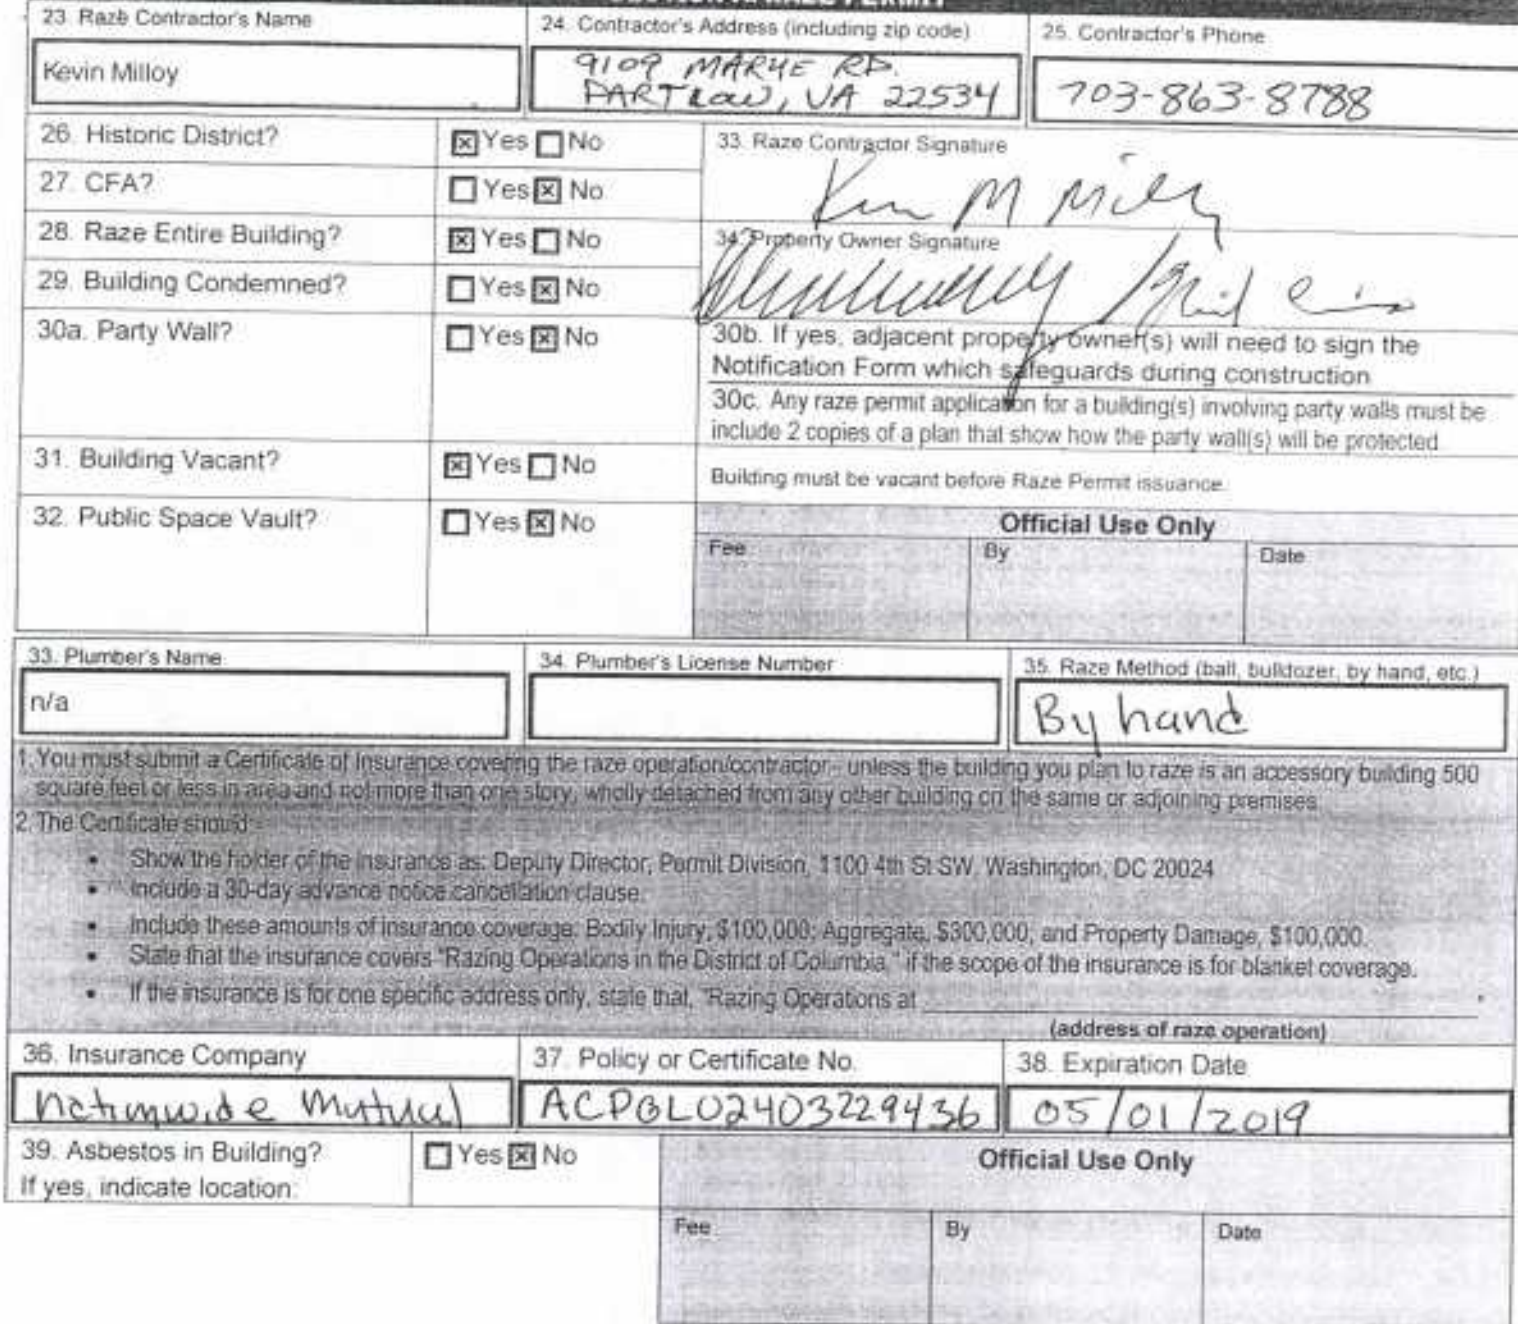 23. Raze Contractor's Name
24. Contractor's Address (including zip code)
25. Contractor's Phone
Kevin Milloy
9109 MARYE RD.
PARTLOW, VA 22534
703-863-8788
26. Historic District?
☒ Yes ☐ No
33. Raze Contractor Signature
27. CFA?
☐ Yes ☒ No
28. Raze Entire Building?
☒ Yes ☐ No
34. Property Owner Signature
29. Building Condemned?
☐ Yes ☒ No
30a. Party Wall?
☐ Yes ☒ No
30b. If yes, adjacent property owner(s) will need to sign the
Notification Form which safeguards during construction
30c. Any raze permit application for a building(s) involving party walls must be
include 2 copies of a plan that show how the party wall(s) will be protected.
31. Building Vacant?
☒ Yes ☐ No
Building must be vacant before Raze Permit issuance.
32. Public Space Vault?
☐ Yes ☒ No
Official Use Only
Fee
By
Date
33. Plumber's Name
34. Plumber's License Number
35. Raze Method (ball, bulldozer, by hand, etc.)
n/a
By hand
1. You must submit a Certificate of Insurance covering the raze operation/contractor - unless the building you plan to raze is an accessory building 500
square feet or less in area and not more than one story, wholly detached from any other building on the same or adjoining premises.
2. The Certificate should -
• Show the holder of the insurance as: Deputy Director, Permit Division, 1100 4th St SW, Washington, DC 20024
• Include a 30-day advance notice cancellation clause.
• Include these amounts of insurance coverage: Bodily Injury, $100,000; Aggregate, $300,000; and Property Damage, $100,000.
• State that the insurance covers "Razing Operations in the District of Columbia," if the scope of the insurance is for blanket coverage.
• If the insurance is for one specific address only, state that, "Razing Operations at
(address of raze operation)
36. Insurance Company
37. Policy or Certificate No.
38. Expiration Date
Nationwide Mutual
ACPGLO2403229436
05/01/2019
39. Asbestos in Building?
☐ Yes ☒ No
If yes, indicate location:
Official Use Only
Fee
By
Date